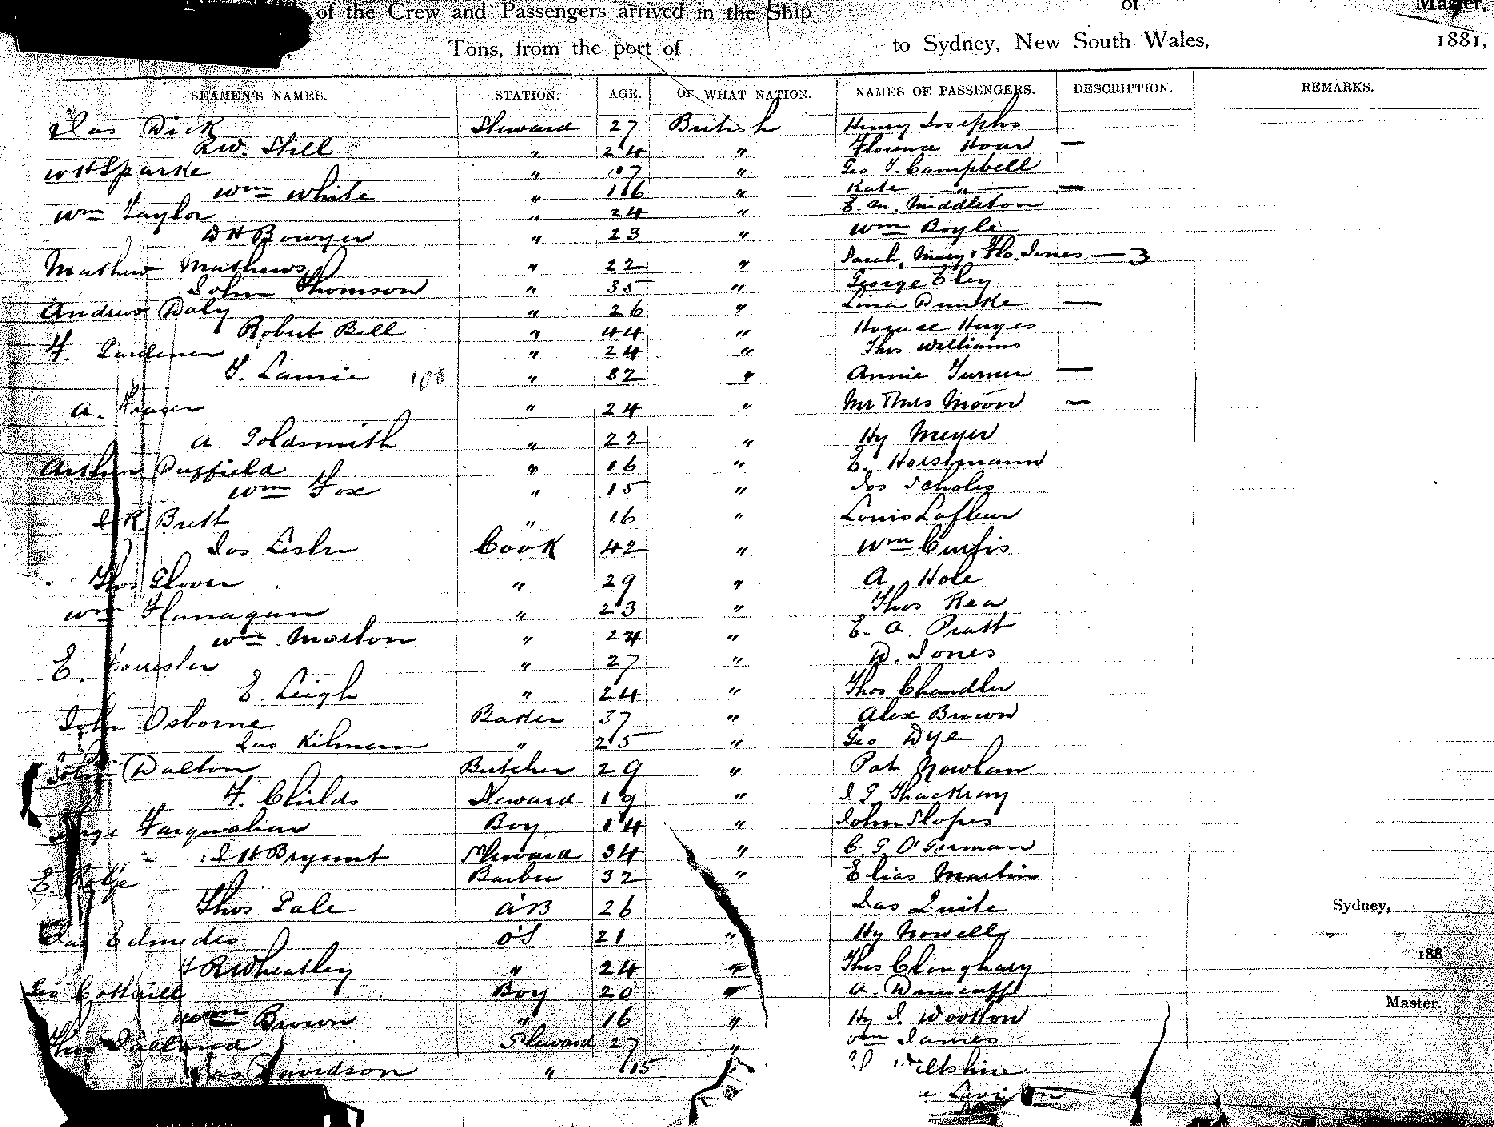 of the Crew and Passengers arrived in the Ship of Master,
Tons, from the port of to Sydney, New South Wales, 1881,
SEAMEN'S NAMES. STATION. AGE. OF WHAT NATION. NAMES OF PASSENGERS. DESCRIPTION. REMARKS.
Jas Dick Steward 27 British Henry Josephs
RW. Still " 24 " Florence Hoard —
WH Sparke " " Geo T. Campbell
Wm White " 16 " Kate " —
Wm Taylor " 24 " E. M. Middleton
DH Bowyer " 23 " Wm Boyle
Mathew Mathews " 22 " Sarah, Mary & Flo. Jones — 3
John Thomson " 35 " George Eley
Andrew Daly " 26 " Lina —
Robert Bell " 44 " Horace Hayes
F. Gardener " 24 " Thos Williams
T. Lawrie 108 " 32 " Annie Turner —
A. Fraser " 24 " Mr & Mrs Moon —
A Goldsmith " 22 " Hy Meyer
Arthur Duffield " 16 " E. Horstmann
Wm Fox " 15 " Jos Scholes
J R Brett " 16 " Louis Lafleur
Jos Leslie Cook 42 " Wm Curtis
Thos Glover " 29 " A Hole
Wm Flanagan " 23 " Thos Rea
Wm Morton " 24 " E. A. Pratt
E. Forrester " 27 " D. Jones
E. Leigh " 24 " Thos Chandler
John Osborne Baker 37 " Alex Brown
Kilmern " 25 " Geo Dye
John Dalton Butcher 29 " Pat Nowlan
F. Childs Steward 19 " J T Thackray
Farquharlan Boy 14 " John Slopes
J H Bryant Steward 34 " C. J. O'Gorman
E. Barber 32 " Elias Martin
Thos Dale AB 26 " Jas Quite
Jas Edmedes OS 21 " Hy Nowell
RWheatley " 24 " Thos
Geo Cottrill Boy 20 " A.
Wm Brown " 16 " Hy J. Wootton
Thos Steward 27 " Wm James
Davidson " 15 Wiltshire
Sydney,
188
Master.